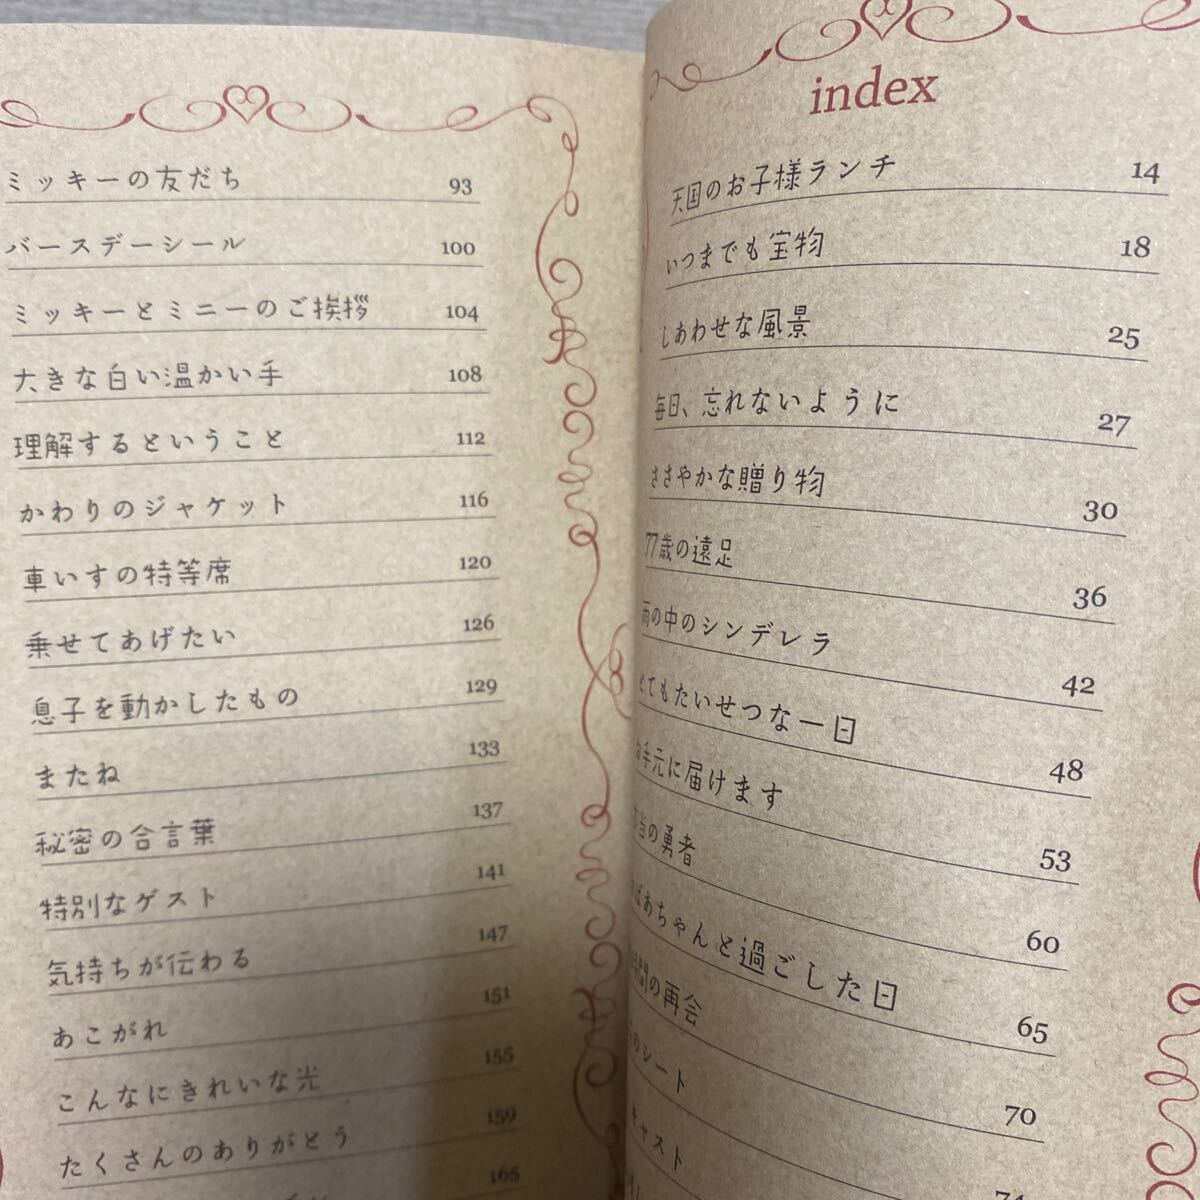 index
天国のお子様ランチ 14
いつまでも宝物 18
しあわせな風景 25
毎日、忘れないように 27
ささやかな贈り物 30
77歳の遠足 36
雨の中のシンデレラ 42
とてもたいせつな一日 48
お手元に届けます 53
本当の勇者 60
おばあちゃんと過ごした日 65
間の再会 70
のシート 74
キャスト
ミッキーの友だち 93
バースデーシール 100
ミッキーとミニーのご挨拶 104
大きな白い温かい手 108
理解するということ 112
かわりのジャケット 116
車いすの特等席 120
乗せてあげたい 126
息子を動かしたもの 129
またね 133
秘密の合言葉 137
特別なゲスト 141
気持ちが伝わる 147
あこがれ 151
こんなにきれいな光 155
たくさんのありがとう 159
165